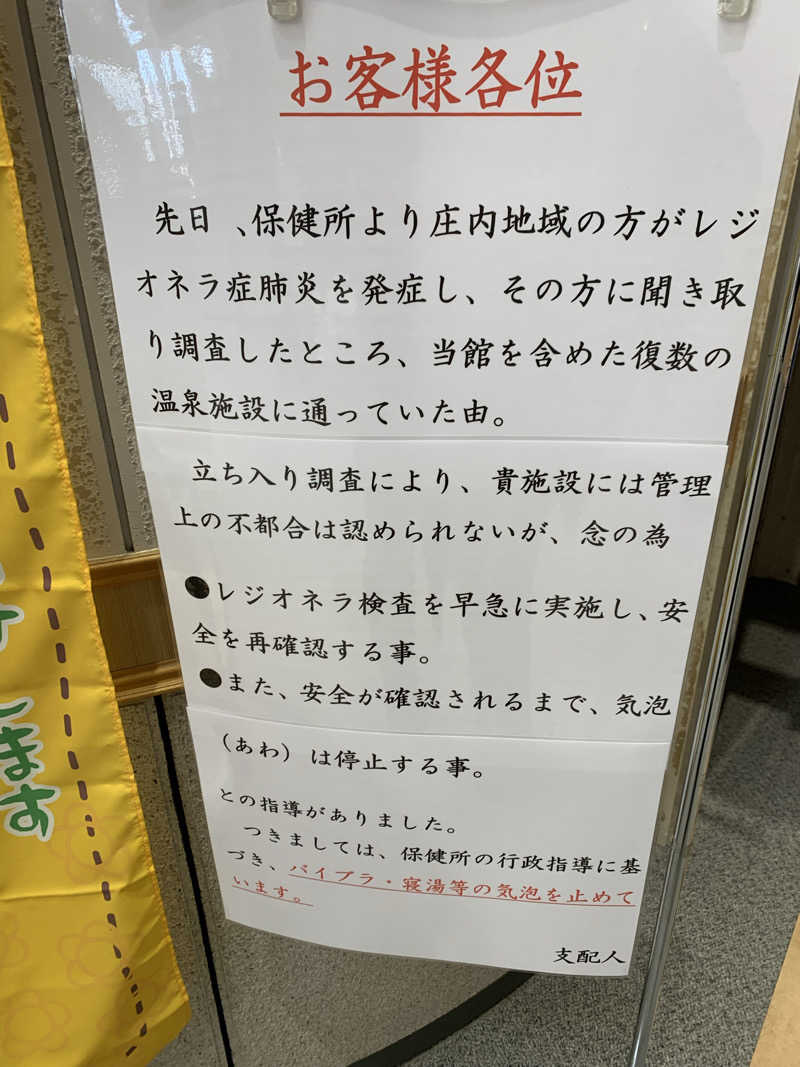 お客様各位
先日、保健所より庄内地域の方がレジ
オネラ症肺炎を発症し、その方に聞き取
り調査したところ、当館を含めた復数の
温泉施設に通っていた由。
立ち入り調査により、貴施設には管理
上の不都合は認められないが、念の為
●レジオネラ検査を早急に実施し、安
全を再確認する事。
●また、安全が確認されるまで、気泡
（あわ）は停止する事。
との指導がありました。
つきましては、保健所の行政指導に基
づき、バイブラ・寝湯等の気泡を止めて
います。
支配人
します